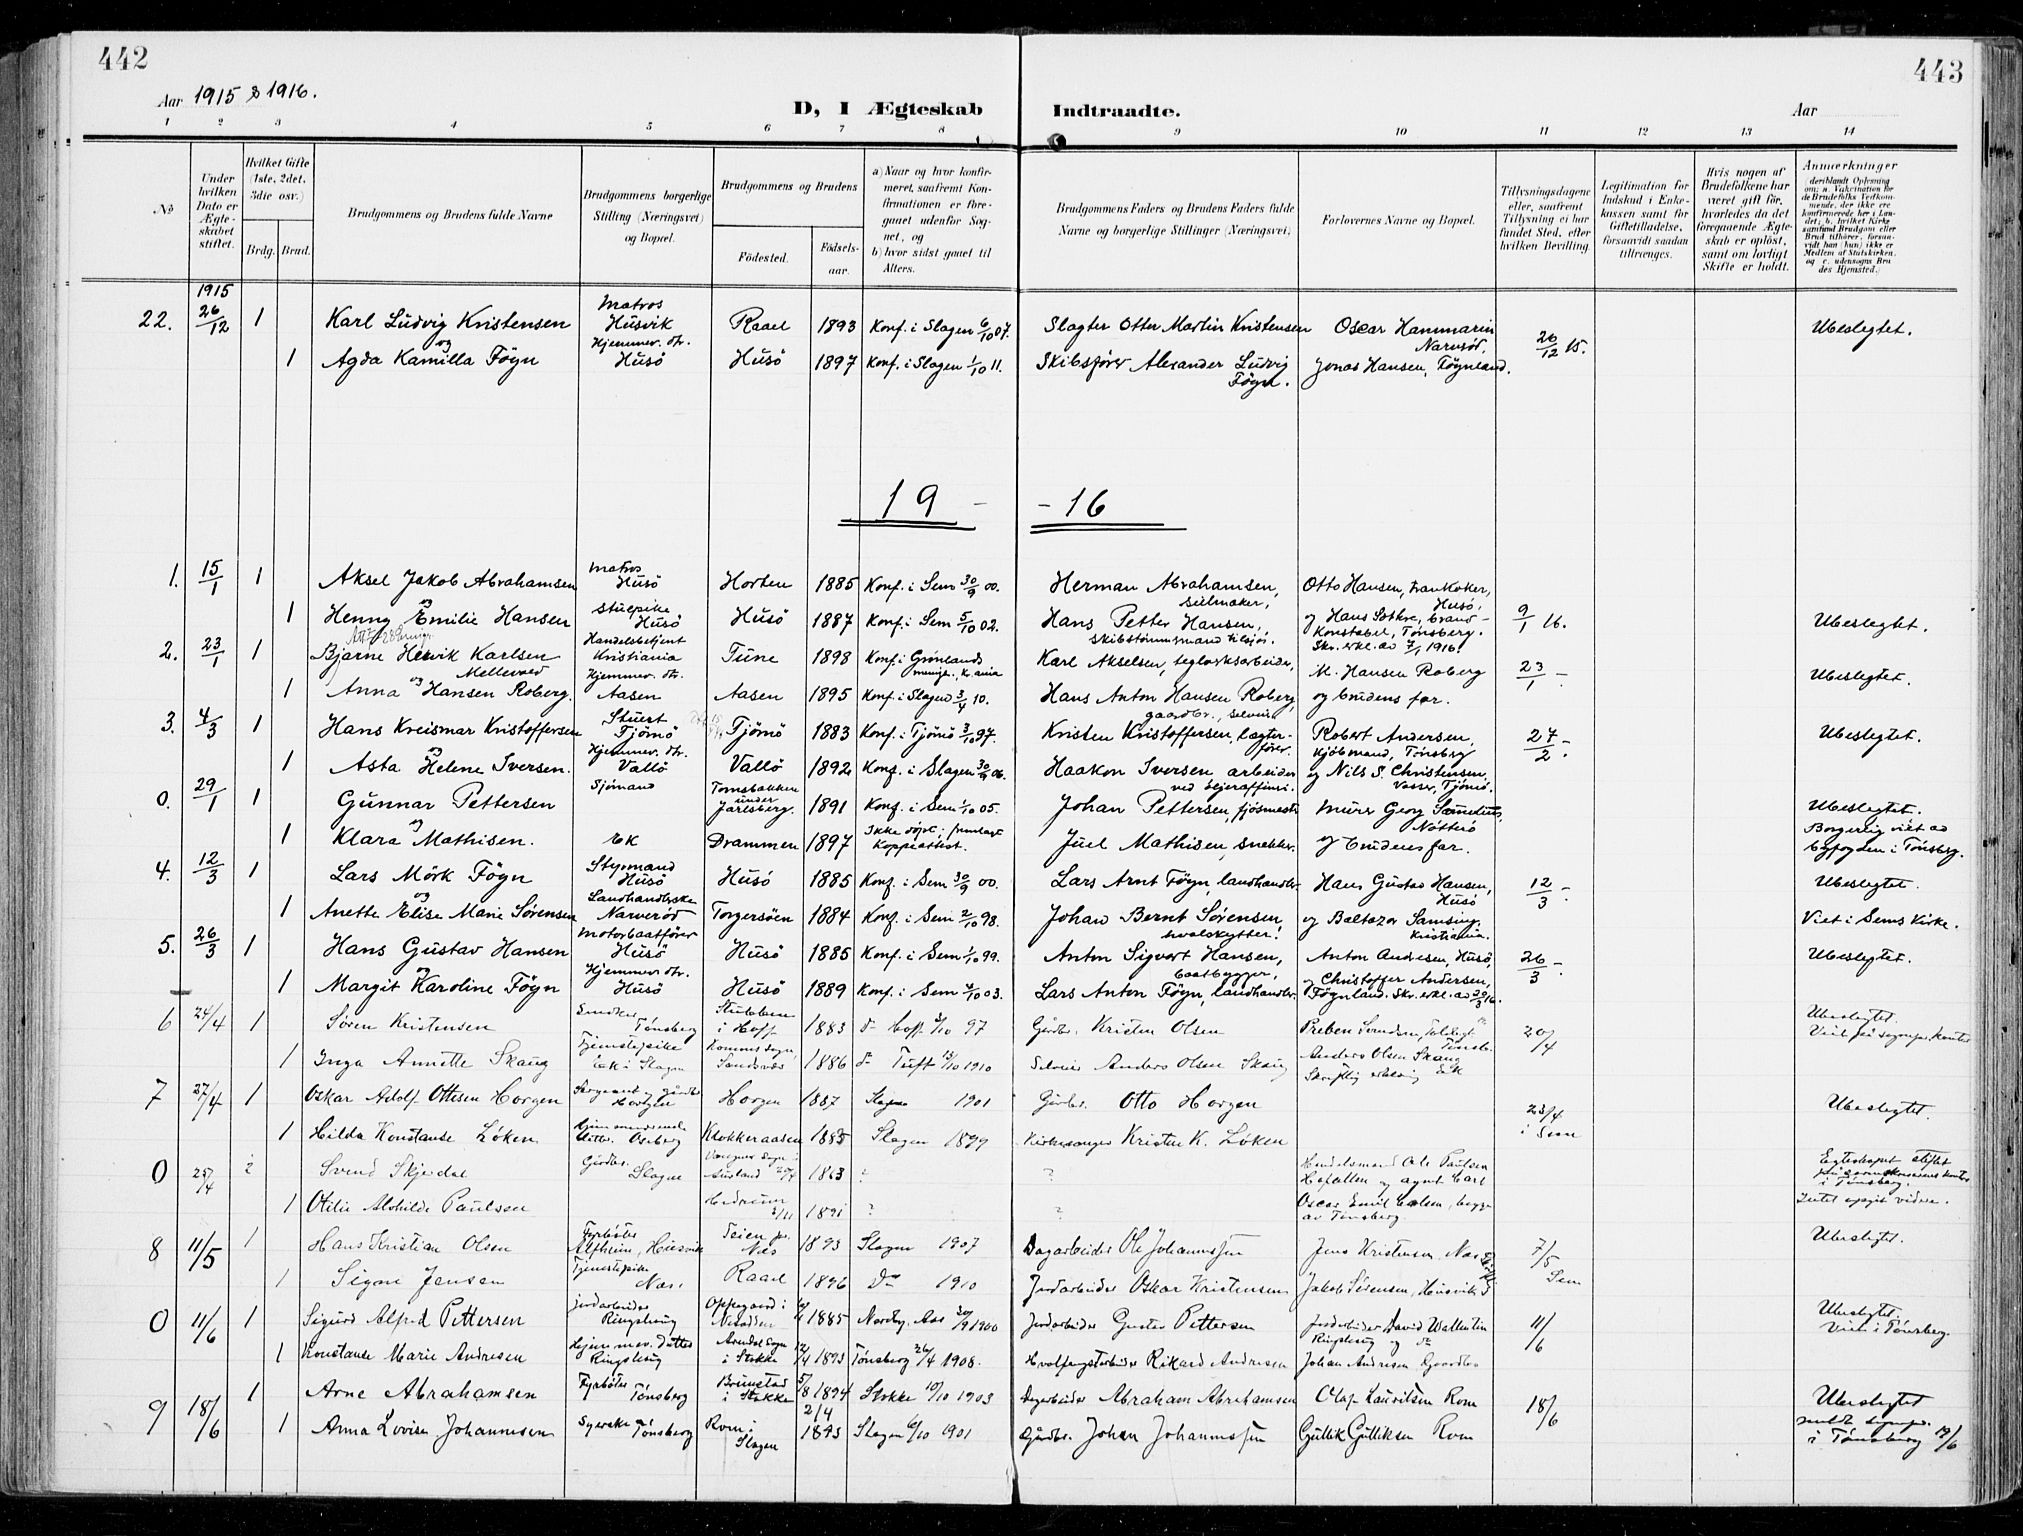 442
443
Aar 1915 & 1916.
D, I Ægteskab Indtraadte.
Aar
1 2 3 4 5 6 7 8 9 10 11 12 13 14
No
Under hvilken Dato er Ægteskabet stiftet.
Hvilket Gifte (1ste, 2det, 3die osv.)
Brdg. Brud.
Brudgommens og Brudens fulde Navne
Brudgommens borgerlige Stilling (Næringsvei) og Bopæl.
Brudgommens og Brudens
Födested. Födselsaar.
a) Naar og hvor konfirmeret, saafremt Konfirmationen er foregaaet udenfor Sognet, og
b) hvor sidst gaaet til Alters.
Brudgommens Faders og Brudens Faders fulde Navne og borgerlige Stillinger (Næringsvei)
Forlovernes Navne og Bopæl.
Tillysningsdagene eller, saafremt Tillysning ei har fundet Sted, efter hvilken Bevilling.
Legitimation for Indskud i Enkekassen samt for Giftetilladelse, forsaavidt saadan tiltrænges.
Hvis nogen af Brudefolkene har været gift för, hvorledes da det foregaaende Ægteskab er oplöst, samt om lovligt Skifte er holdt.
Anmærkninger (deriblandt Oplysning om: a. Vakcination for de Brudefolks Vedkommende, der ikke ere konfirmerede her i Landet; b. hvilket Kirkesamfund Brudgom eller Brud tilhörer, forsaavidt han (hun) ikke er Medlem af Statskirken, og c. udensogns Brudes Hjemsted.)
1915
22. 26/12 1 Karl Ludvig Kristensen Matros Husvik Raael 1893 Konf. i Slagen 6/10 07. Slagter Otter Martin Kristensen Oscar Hammarin 26/12 15. Ubeslegtet.
og
1 Agda Kamilla Föyn Hjemmev. dtr. Husö Husö 1897 Konf. i Slagen 1/10 11. Skibsförer Alexander Ludvig Föyn. Jonas Hansen, Föynland.
19 - - 16
1. 15/1 1 Aksel Jakob Abrahamsen Matros Husö Horten 1885 Konf. i Sem 30/9 00. Herman Abrahamsen, seilmaker, Otto Hansen, trankoker, Husö,
og
1 Henny Emilie Hansen Stuepike Husö Husö 1887 Konf. i Sem 5/10 02. Hans Petter Hansen, skibstømmermand tilsjøs. og Hans brandkonstabel, Tønsberg. Skr. erkl. av 7/1 1916. 9/1 16. Ubeslegtet.
2. 23/1 1 Bjarne Karlsen Mellevold Handelsbetjent Kristiania Tune 1898 Konf. i Grönlands menigh. Kr.ania Karl Akselsen, teglverksarbeider, M. Hansen Roberg 23/1 - Ubeslegtet.
og
1 Anna Hansen Roberg. Hjemmev. dtr. Aasen Aasen 1895 Konf. i Slagen 3/4 10. Hans Anton Hansen Roberg, gaardbr., selveier og brudens far.
3. 4/3 1 Hans Kreismar Kristoffersen Stuert Tjömö Tjömö 1883 Konf. i Tjömö 3/10 97. Kristen Kristoffersen, lægterförer. Robert Andersen, kjöbmand, Tönsberg 27/2 - Ubeslegtet.
og
1 Asta Helene Iversen. Hjemmev. dtr. Vallö Vallö 1892 Konf. i Slagen 30/9 06. Haakon Iversen, arbeider ved oljeraffineri. og Nils S. Christensen, Tjömö.
0. 29/1 1 Gunnar Pettersen Sjömand under Jarlsberg. 1891 Konf. i Sem 1/10 05. Johan Pettersen, fjösmester Murer Georg Nötterö Ubeslegtet.
og
1 Klara Mathisen. Ek Drammen 1897 Ikke döpt; fremlagt koppeattest. Juel Mathisen, snekker. og brudens far. Borgerlig viet av byfogden i Tönsberg.
4. 12/3 1 Lars Mörk Föyn Styrmand Husö Husö 1885 Konf. i Sem 30/9 00. Lars Arnt Föyn, landhandler Hans Gustav Hansen, Husö 12/3 - Ubeslegtet.
og
1 Anette Elise Marie Sørensen Landhandlerske Narverød Torgersöen 1884 Konf. i Sem 2/10 98. Johan Bernt Sørensen, hvalskytter. og Baltazar Samsing, Kristiania. Viet i Sems Kirke.
5. 26/3 1 Hans Gustav Hansen Motorbaatförer Husö Husö 1885 Konf. i Sem 1/10 99. Anton Sigvert Hansen, baatbygger, Anton Andresen, Husö, 26/3 - Ubeslegtet.
og
1 Margit Karoline Föyn Hjemmev. dtr. Husö Husö 1889 Konf. i Sem 4/10 03. Lars Anton Föyn, landhandler. og Christoffer Andersen, Föynland. Skr. erkl. av 20/3 16.
6 24/4 1 Søren Kristensen Tønsberg i Hoff 1883 do Hoff 3/10 97 Gårdbr. Kristen Olsen Preben 20/4 Ubeslegtet.
1 Inga Annette Skaug Tjenestepike Ek i Slagen Sandsvær 1886 do Tuft 13/10 1910 Selveier Anders Olsen Skaug Anders Olsen Skaug Skriftlig erklæring Ek
7 27/4 1 Oskar Adolf Ottesen Horgen Sergeant og gårdbr. Horgen Horgen 1887 Slagen 1901 Gårdbr. Otto Horgen 23/4 i Sem Ubeslegtet.
1 Hilda Konstanse Löken Hjemmeværende datter. Oseberg Klokkeraasen 1885 Slagen 1899 Kirkesanger Kristen K. Löken
0 25/4 2 Svend Skjerdal Gårdbr. Slagen 1863 ? ? Handelsmand Ole Paulsen og agent Carl Egteskapet stiftet i Tønsberg.
1 Otilie Alvhilde Paulsen Hedrum 1891 ? ? Oscar Emil av Tønsberg. Intet opgit videre.
8 11/5 1 Hans Kristian Olsen Fyrbøter Alfheim, Husvik Teien pr. Nes 1893 Slagen 1907 Dagarbeider Ole Johannessen Jens Kristensen 7/5 Sem Ubeslegtet.
1 Signe Jensen Tjenestepike Nes. Raael 1896 Do 1910 Jordarbeider Oskar Kristensen Jakob Sørensen, Husvik
0 11/6 1 Sigurd Alfred Pettersen jordarbeider Ringshaug Oppegaard i Nesodden 1885 Nordby, Aas 1900 Jordarbeider Gustav Pettersen Jordarbeider David Wallentin Ringshaug og 11/6 Ubeslegtet. Viet i Tønsberg.
1 Konstanse Marie Andresen Hjemmev. datter Ringshaug Arendal sogn i Stokke 1893 Tønsberg 26/4 1908. Hvalfangstarbeider Rikard Andresen Johan Andresen
9 18/6 1 Arne Abrahamsen Fyrbøter Tønsberg Brunstad i Stokke 1894 Stokke 10/10 1903 Dagarbeider Abraham Abrahamsen Olaf Lauritsen Rom 18/6 Ubeslegtet
1 Anna Lovise Johannesen Syerske Tønsberg Rom i Slagen 2/4 1893 Slagen 6/10 1901 Gårdbr. Johan Johannessen Gullik Gulliksen Rom i Tønsberg 19/6